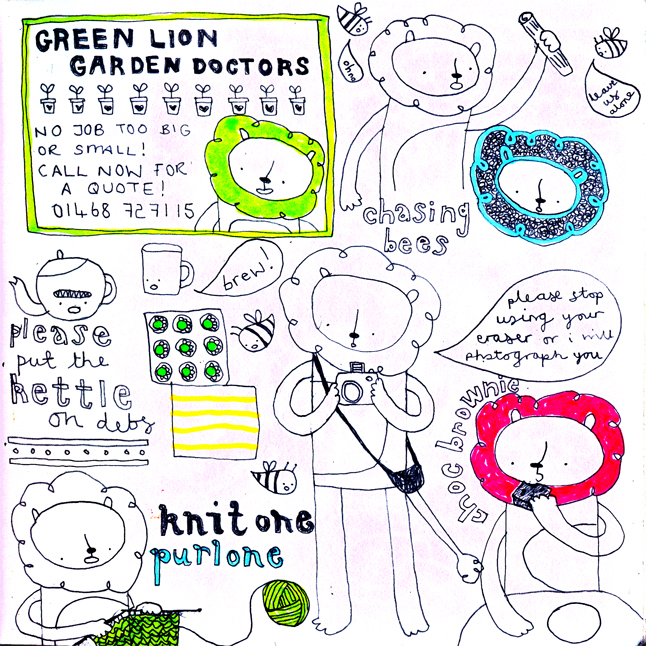 GREEN LION
GARDEN DOCTORS
NO JOB TOO BIG
OR SMALL!
CALL NOW FOR
A QUOTE!
01468 727115
ohno
leave
us
alone
chasing
bees
brew!
please
put the
kettle
on debs
please stop
using your
eraser or i will
photograph you
choc brownie
knit one
purl one